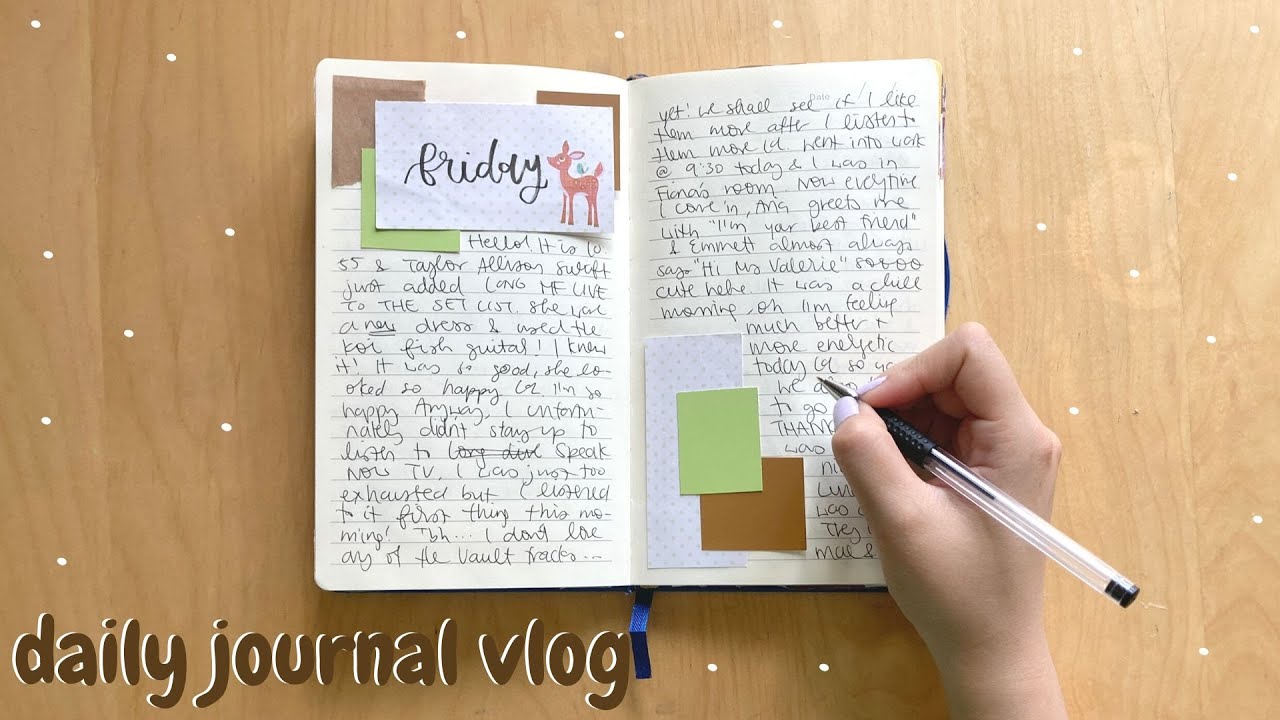 friday
Hello! It is 10:
55 & Taylor Allison Swift
just added LONG LIVE
TO THE SET LIST. She wore
a new dress & used the
koi fish guitar! I knew
it! It was so good, she lo-
oked so happy lol I'm so
happy. Anyway, I unfortu-
nately didn't stay up to
listen to long live Speak
Now TV, I was just too
exhausted but I listened
to it first thing this mo-
rning! Tbh... I don't love
any of the vault tracks...
Date / /
yet! We shall see if I like
them more after I listen to
them more lol. Went into work
@ 9:30 today & I was in
Fiona's room. Now everytime
I come in, greets me
with "I'm your best friend"
& Emmett almost always
says "Hi Ms Valerie" soooo
cute hehe. It was a chill
morning, oh I'm feeling
much better &
more energetic
today lol so
we
to go
THANK
was
was
They
mac &
daily journal vlog